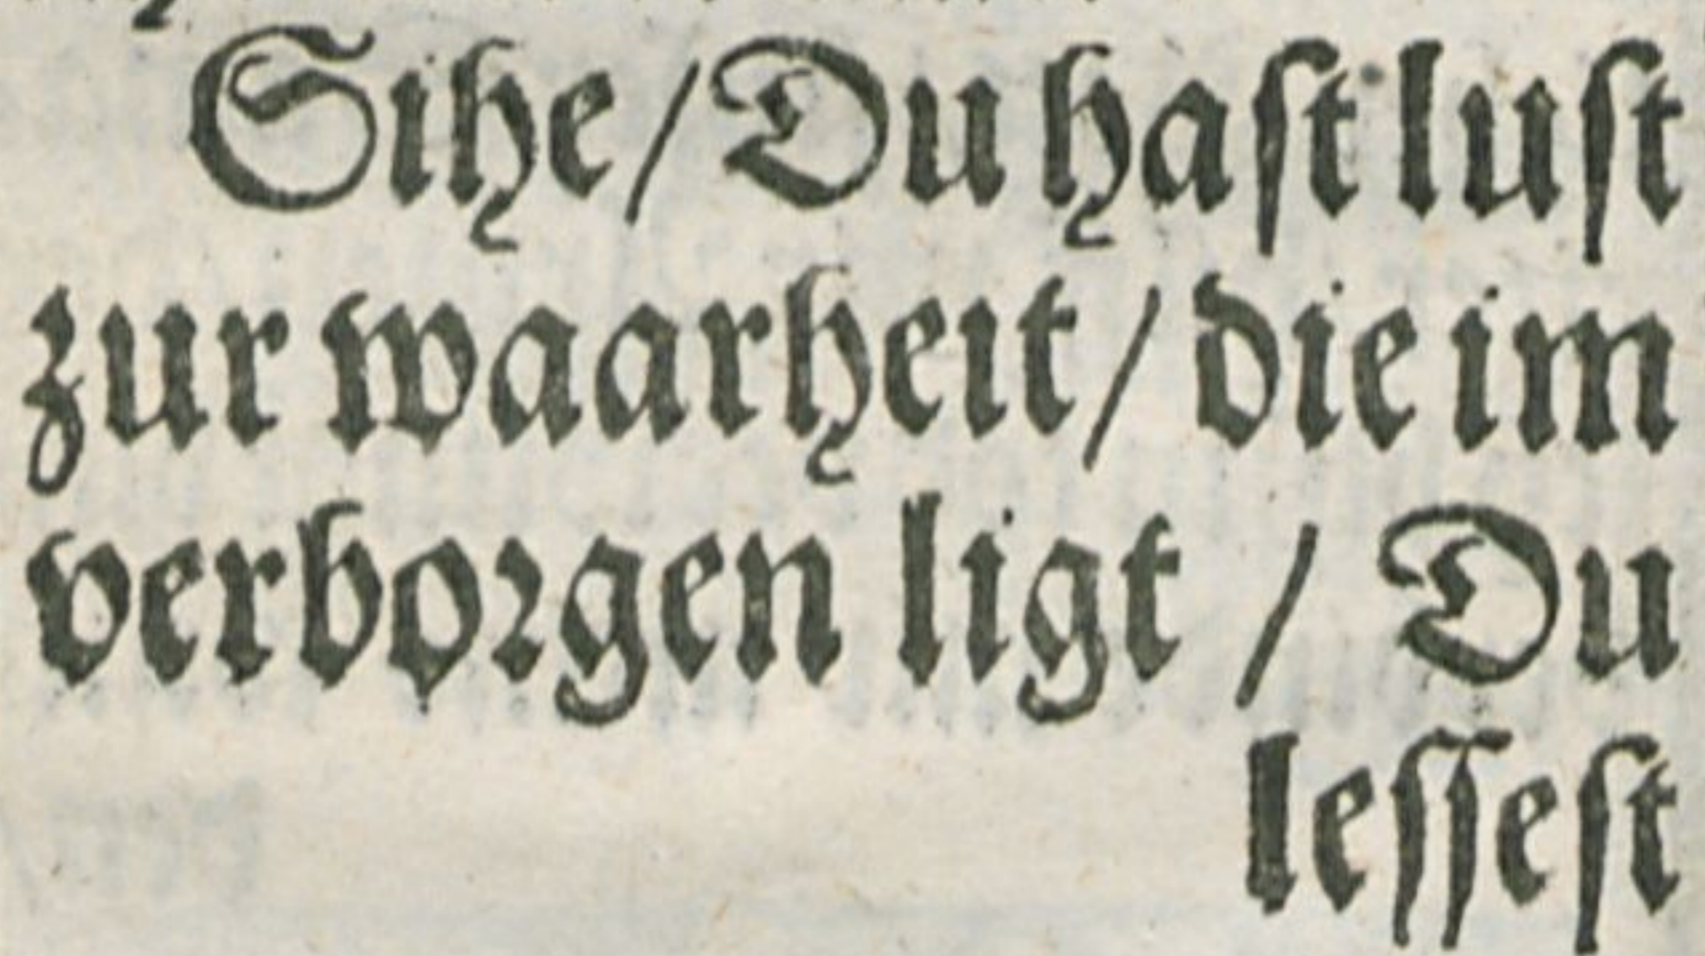 Sihe / Du haſt luſt
zur waarheit / die im
verboꝛgen ligt / Du
leſſeſt